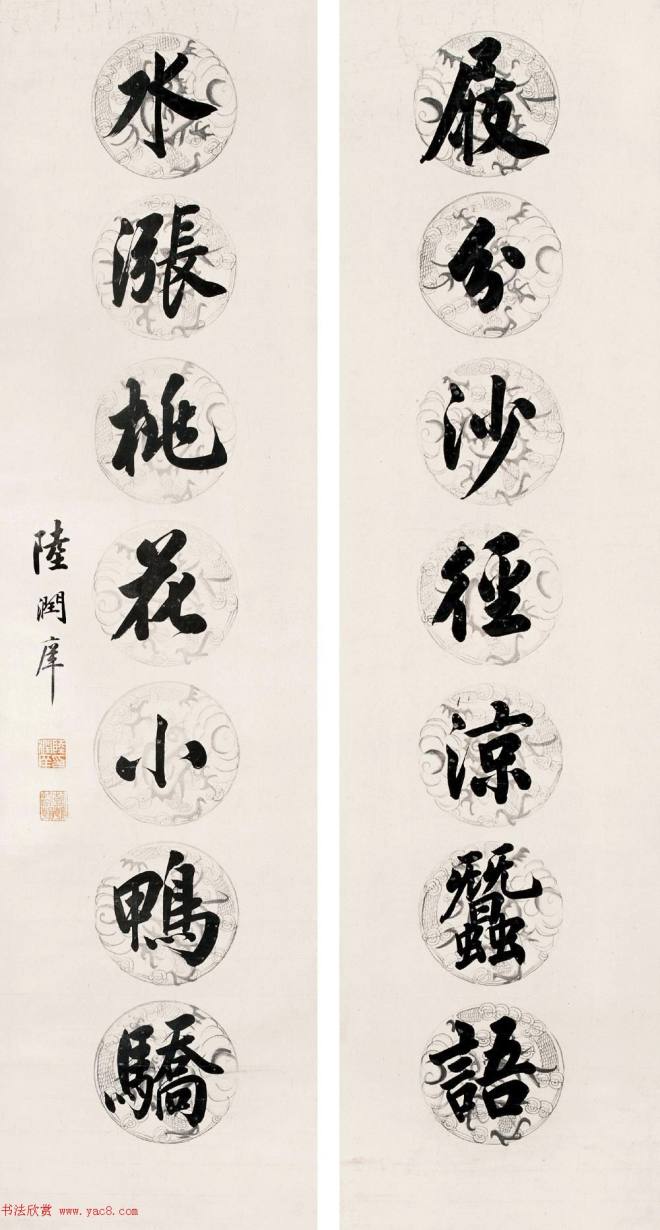 屐分沙徑涼蠶語
水漲桃花小鴨驕
陸潤庠
书法欣赏 www.yac8.com